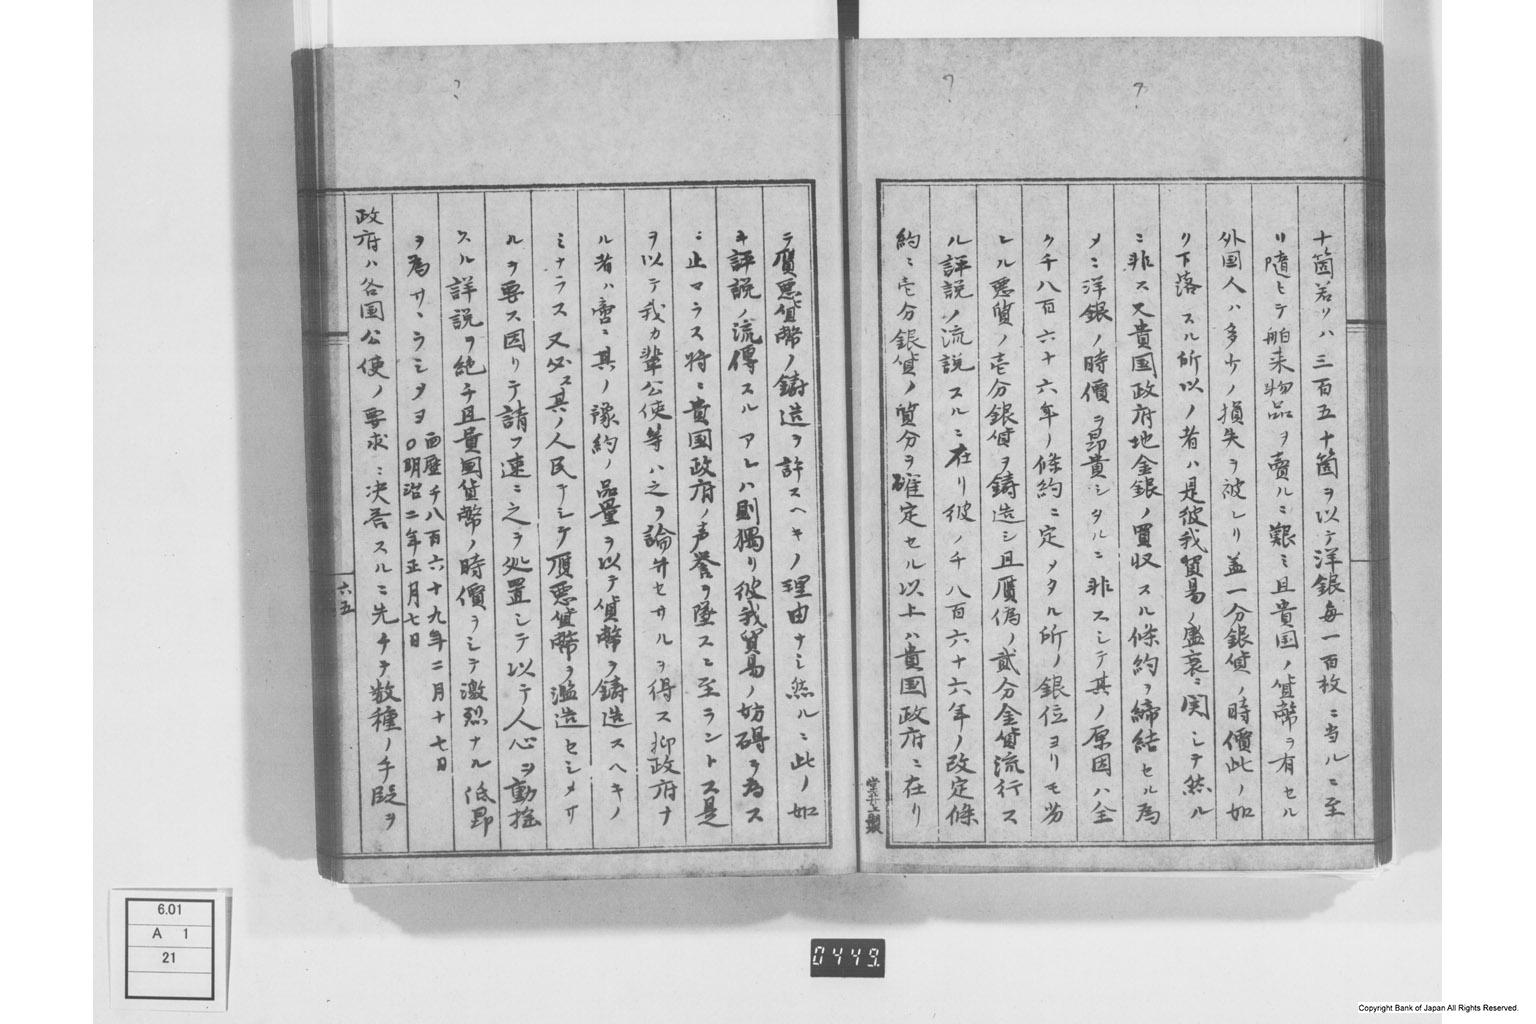 十箇若リハ三百五十箇ヲ以テ洋銀毎一百枚ニ当ルニ至
リ随ヒテ舶来物品ヲ売ルニ艱ミ且貴国ノ貨幣ヲ有セル
外国人ハ多少ノ損失ヲ被レリ蓋一分銀貨ノ時價此ノ如
ク下落スル所以ノ者ハ是彼我貿易ノ盛衰ニ関シテ然ル
ニ非ス又貴国政府地金銀ノ買収スル條約ヲ締結セル為
メニ洋銀ノ時價ヲ昂貴シタルニ非スシテ其ノ原因ハ全
ク千八百六十六年ノ條約ニ定メタル所ノ銀位ヨリモ劣
レル悪質ノ壱分銀貨ヲ鋳造シ且贋偽ノ貳分金貨流行ス
ル評説ノ流説スルニ在リ彼ノ千八百六十六年ノ改定條
約ニ壱分銀貨ノ質分ヲ確定セル以上ハ貴国政府ニ在リ
テ贋悪貨幣ノ鋳造ヲ許スヘキノ理由ナシ然ルニ此ノ如
キ評説ノ流傳スルアレハ則獨リ彼我貿易ノ妨碍ヲ為ス
ニ止マラス将ニ貴国政府ノ声誉ヲ墜スニ至ラントス是
ヲ以テ我カ輩公使等ハ之ヲ論弁セサルヲ得ス抑政府ナ
ル者ハ啻ニ其ノ豫約ノ品量ヲ以テ貨幣ヲ鋳造スヘキノ
ミナラス又必ス其ノ人民ヲシテ贋悪貨幣ヲ濫造セシメサ
ルヲ要ス因リテ請フ速ニ之ヲ処置シテ以テ人心ヲ動揺
スル評説ヲ絶チ且貴国貨幣ノ時價ヲシテ激烈ナル低昂
ヲ為サヽラシメヨ西歴千八百六十九年二月十七日
〇明治二年正月七日
政府ハ各国公使ノ要求ニ决答スルニ先チテ数種ノ手段ヲ
六五
6.01
A 1
21
0449.
Copyright Bank of Japan All Rights Reserved.